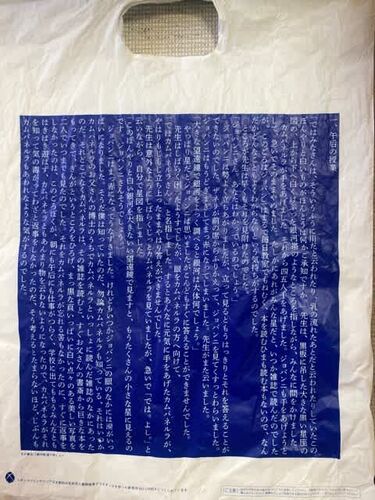 午后の授業
「ではみなさんは、そういうふうに川だと云われたり、乳の流れたあとだと云われたりしていたこの
ぼんやりと白いものがほんとうは何かご承知ですか。」先生は、黒板に吊した大きな黒い星座の
図の、上から下へ白くけぶった銀河帯のようなところを指しながら、みんなに問をかけました。
カムパネルラが手をあげました。それから四五人手をあげました。ジョバンニも手をあげようと
して、急いでそのままやめました。たしかにあれがみんな星だと、いつか雑誌で読んだのでした
が、このごろはジョバンニはまるで毎日教室でもねむく、本を読むひまも読む本もないので、なん
だかどんなこともよくわからないという気持ちがするのでした。
ところが先生は早くもそれを見附けたのでした。
「ジョバンニさん。あなたはわかっているのでしょう。」
ジョバンニは勢よく立ちあがりましたが、立って見るともうはっきりとそれを答えることが
できないのでした。ザネリが前の席からふりかえって、ジョバンニを見てくすっとわらいました。
ジョバンニはもうどぎまぎしてまっ赤になってしまいました。先生がまた云いました。
「大きな望遠鏡で銀河をよっく調べると銀河は大体何でしょう。」
やっぱり星だとジョバンニは思いましたがこんどもすぐに答えることができませんでした。
先生はしばらく困ったようすでしたが、眼をカムパネルラの方へ向けて、
「ではカムパネルラさん。」と名指しました。するとあんなに元気に手をあげたカムパネルラが、
やはりもじもじ立ち上ったままやはり答えができませんでした。
先生は意外なようにしばらくじっとカムパネルラを見ていましたが、急いで「では。よし。」と
云いながら、自分で星図を指しました。
「このぼんやりと白い銀河を大きないい望遠鏡で見ますと、もうたくさんの小さな星に見えるの
です。ジョバンニさんそうでしょう。」
ジョバンニはまっ赤になってうなずきました。けれどもいつかジョバンニの眼のなかには涙がいっ
ぱいになりました。そうだ僕は知っていたのだ、勿論カムパネルラも知っている、
カムパネルラのお父さんの博士のうちでカムパネルラといっしょに読んだ雑誌のなかにあった
のだ。それどこでなくカムパネルラは、その雑誌を読むと、すぐお父さんの書斎から巨きな本を
もってきて、ぎんがというところをひろげ、まっ黒な頁いっぱいに白い点々のある美しい写真を二
人でいつまでも見たのでした。それをカムパネルラが忘れる筈もなかったのに、すぐに返事を
しなかったのは、このごろぼくが、朝にも午后にも仕事がつらく、学校に出てももうみんなとも
はきはき遊ばず、カムパネルラともあんまり物を云わないようになったので、カムパネルラがそれ
を知って気の毒がってわざと返事をしなかったのだ、そう考えるとたまらないほど、じぶんも
カムパネルラもあわれなような気がするのでした。